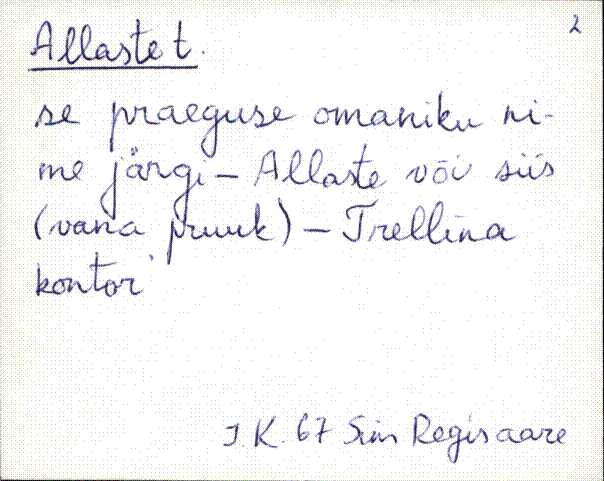 2
Allaste t.
se praeguse omaniku ni-
me järgi – Allaste või siis
(vana pruuk) – Trellina
kontor
J. K. 67 Siin Regisaare